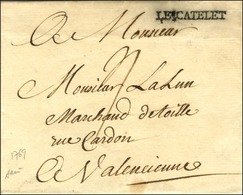 LE CATELET
A Monsieur
Monsieur LaLun
Marchand de toille
rue Cardon
A Valencienne
1769